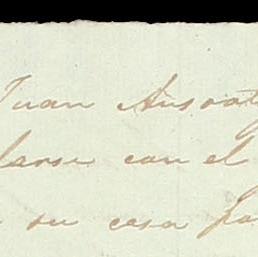 Juan Ansoat
larse con el
su casa pa